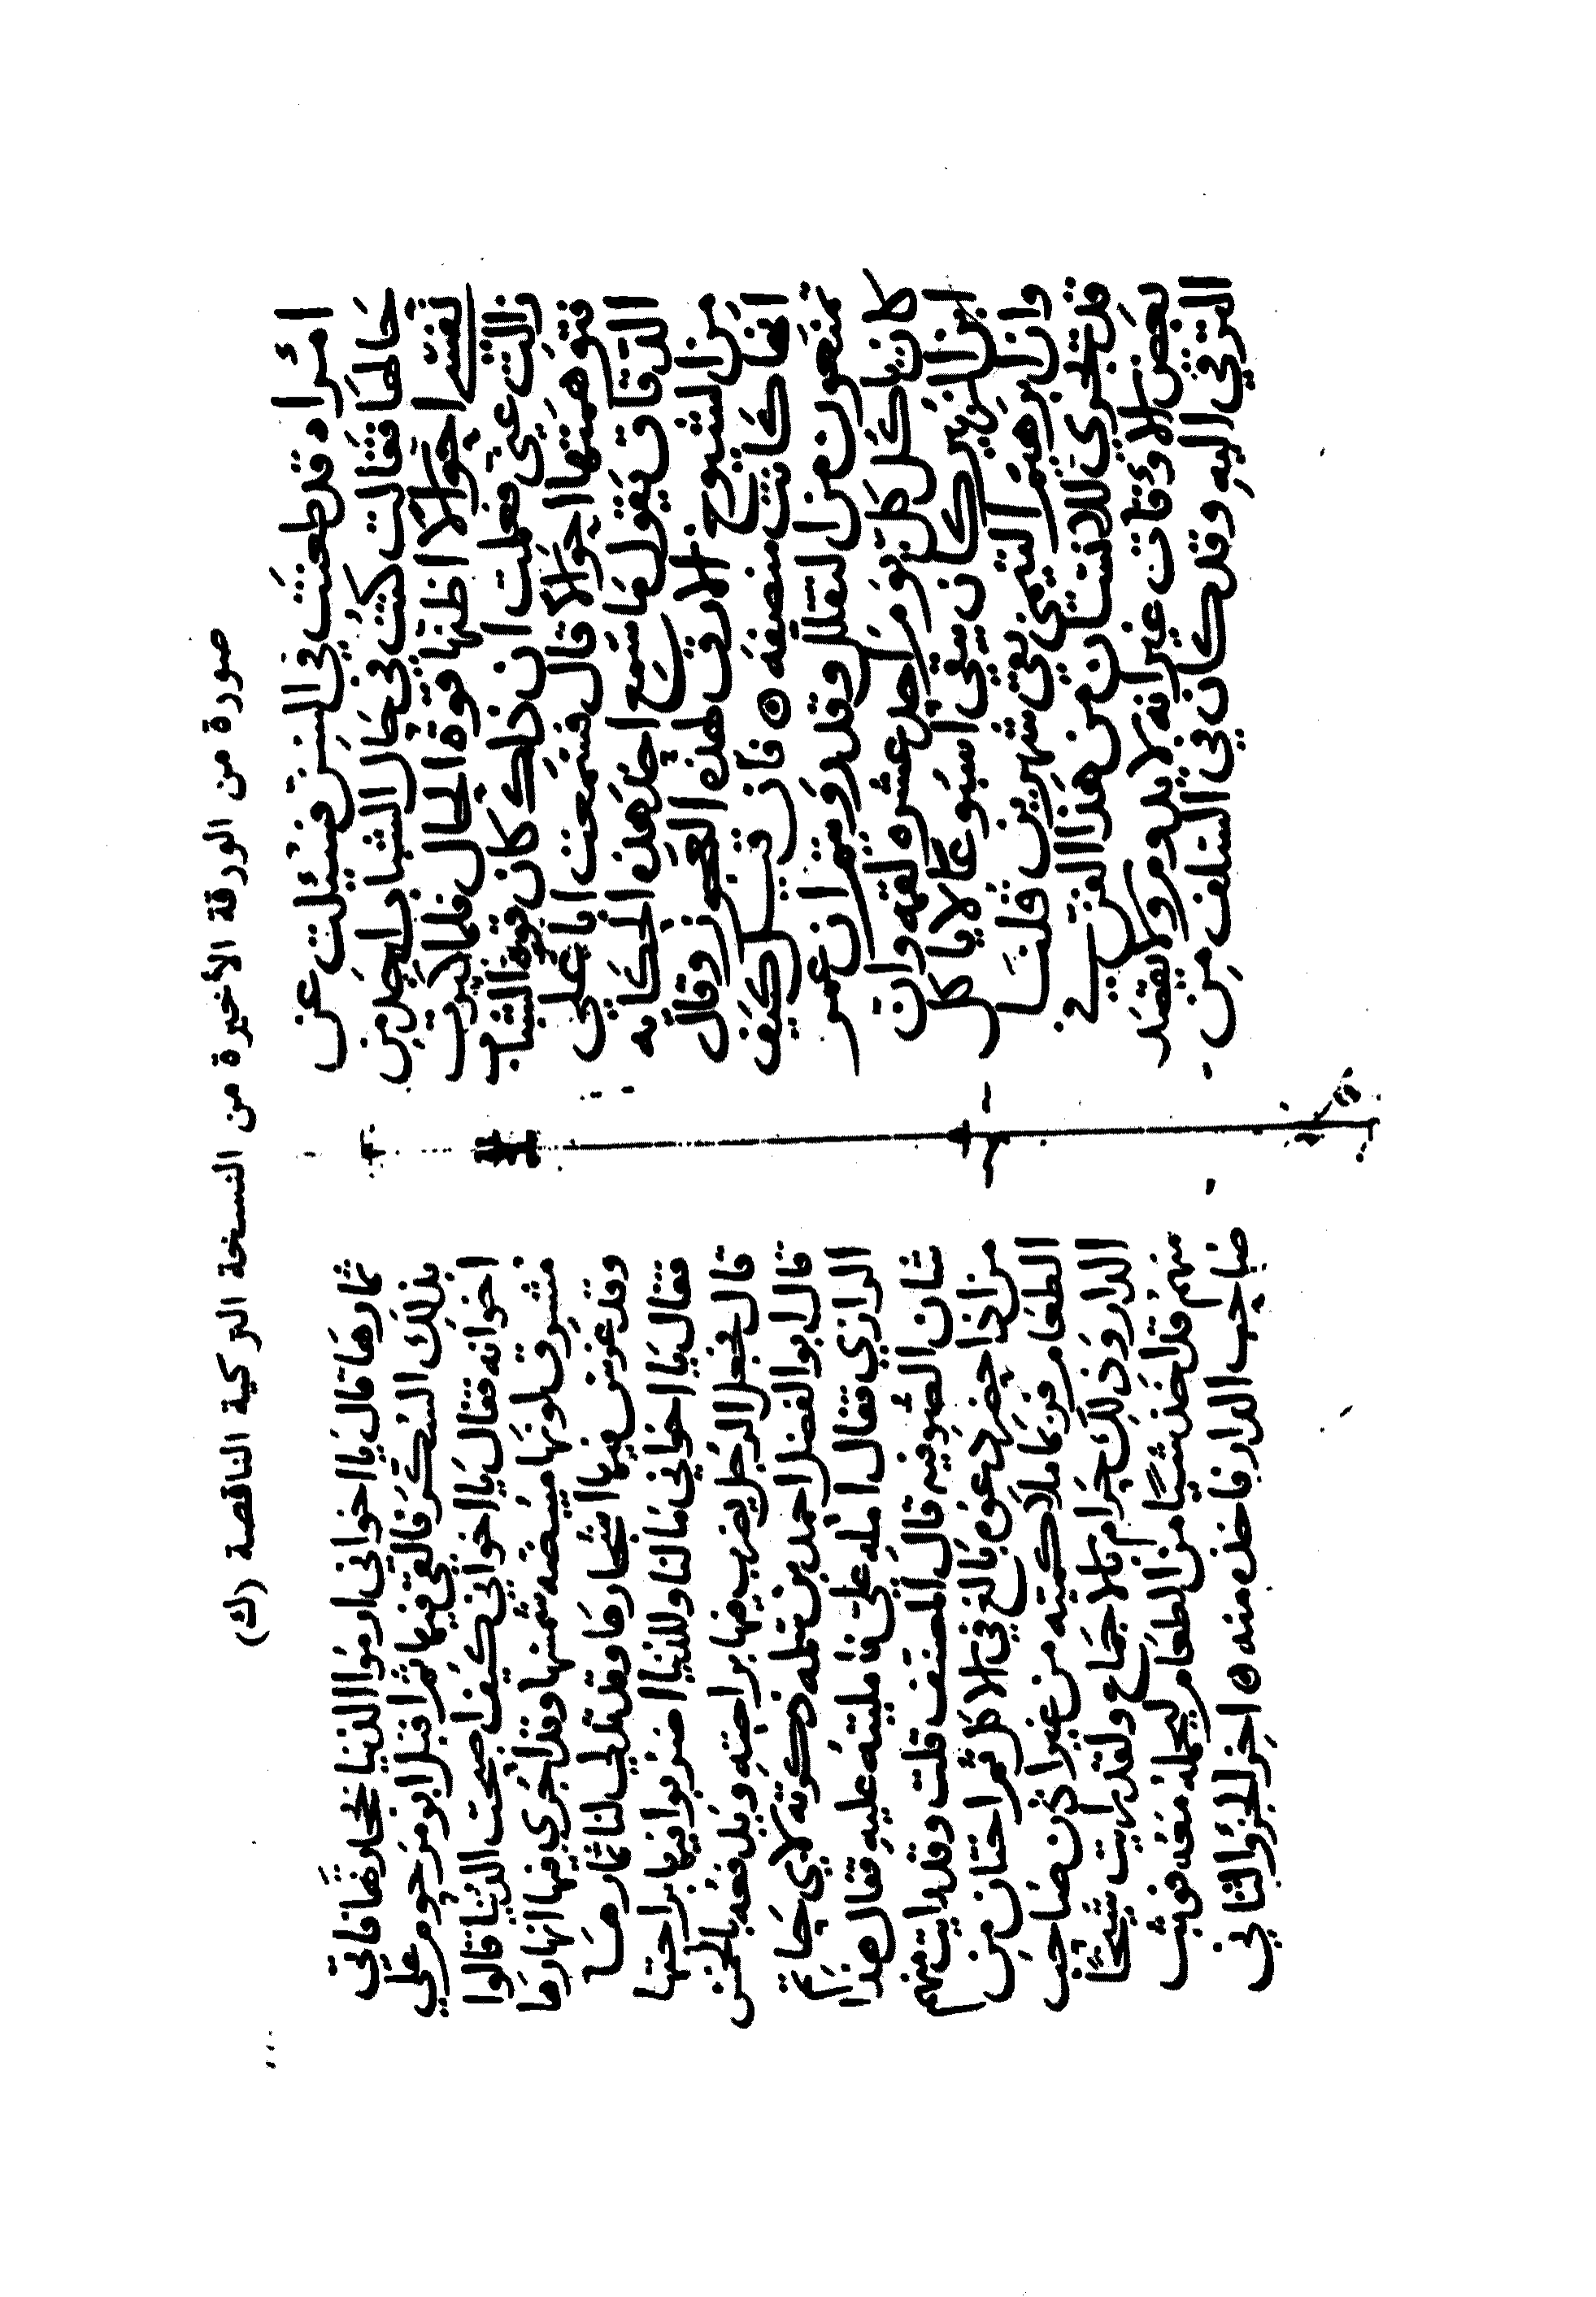 صورة من الورقة الأخيرة من النسخة التركية الناقصة (ك)
امراه قد طعنت في السن فسئلت عن
حالها فقالت كنت في حال الشباب اجد من
نفسي احوالا اظنها قوة الحال فلما كبرت
زالت عني فعلمت ان ذلك كان قوة الشباب
فتوهمتها احوالا قال فسمعت ابا علي
الدقاق يقول ما سمع احد هذه الحكاية
من الشيوخ الا رق لهذه العجوز وقال
انها كانت منصفه ۞ فان قيل كيف
تمنعون من التقلل وقد رويتم ان عمر
كان ياكل كل يوم احدى عشره لقمه وان
بن الزبير كان يبقى اسبوعا لا ياكل
وان ابرهيم التيمي بقي شهرين قلنا
قد يجري للانسان من هذا الفن في
بعض الاوقات غير انه لا يدوم ولا يقصد
الترقي اليه وقد كان في السلف من
ثمارها قال يا اخواني ارموا الدنيا بحجارتها فاتي
بذلك السكر فالقي فيها ثم اقبل ابو مرحوم على
اخوانه فقال يا اخواني كيف اصبحت الدنيا قالوا
مشرق لونها مبيضه شمسها وقد اجري فيها انهارها
وقد غرس فيها اشجارها وقد تدلى لنا ثمارها
فقال يا اخواني ما لنا وللدنيا اضربوا فيها براحتها
قال فجعل الرجل يضرب فيها براحته ويدفعه بالخمس
قال ابو الفضل احمد بن سلمه ذكرته لابي حاتم
الرازي فقال امله علي فامليته عليه فقال هذا
شان الصوفيه قال المصنف قلت وقد رايت منهم
من اذا حضر دعوه بالغ في الاكل ثم اختار من
الطعام فربما ملا كميه من غير اذن صاحب
الدار وذلك حرام بالاجماع ولقد رايت شيخا
منهم قد اخذ شيا من الطعام ليحمله معه فوثب
صاحب الدار فاخذه منه ۞ اخر الجزو الثاني